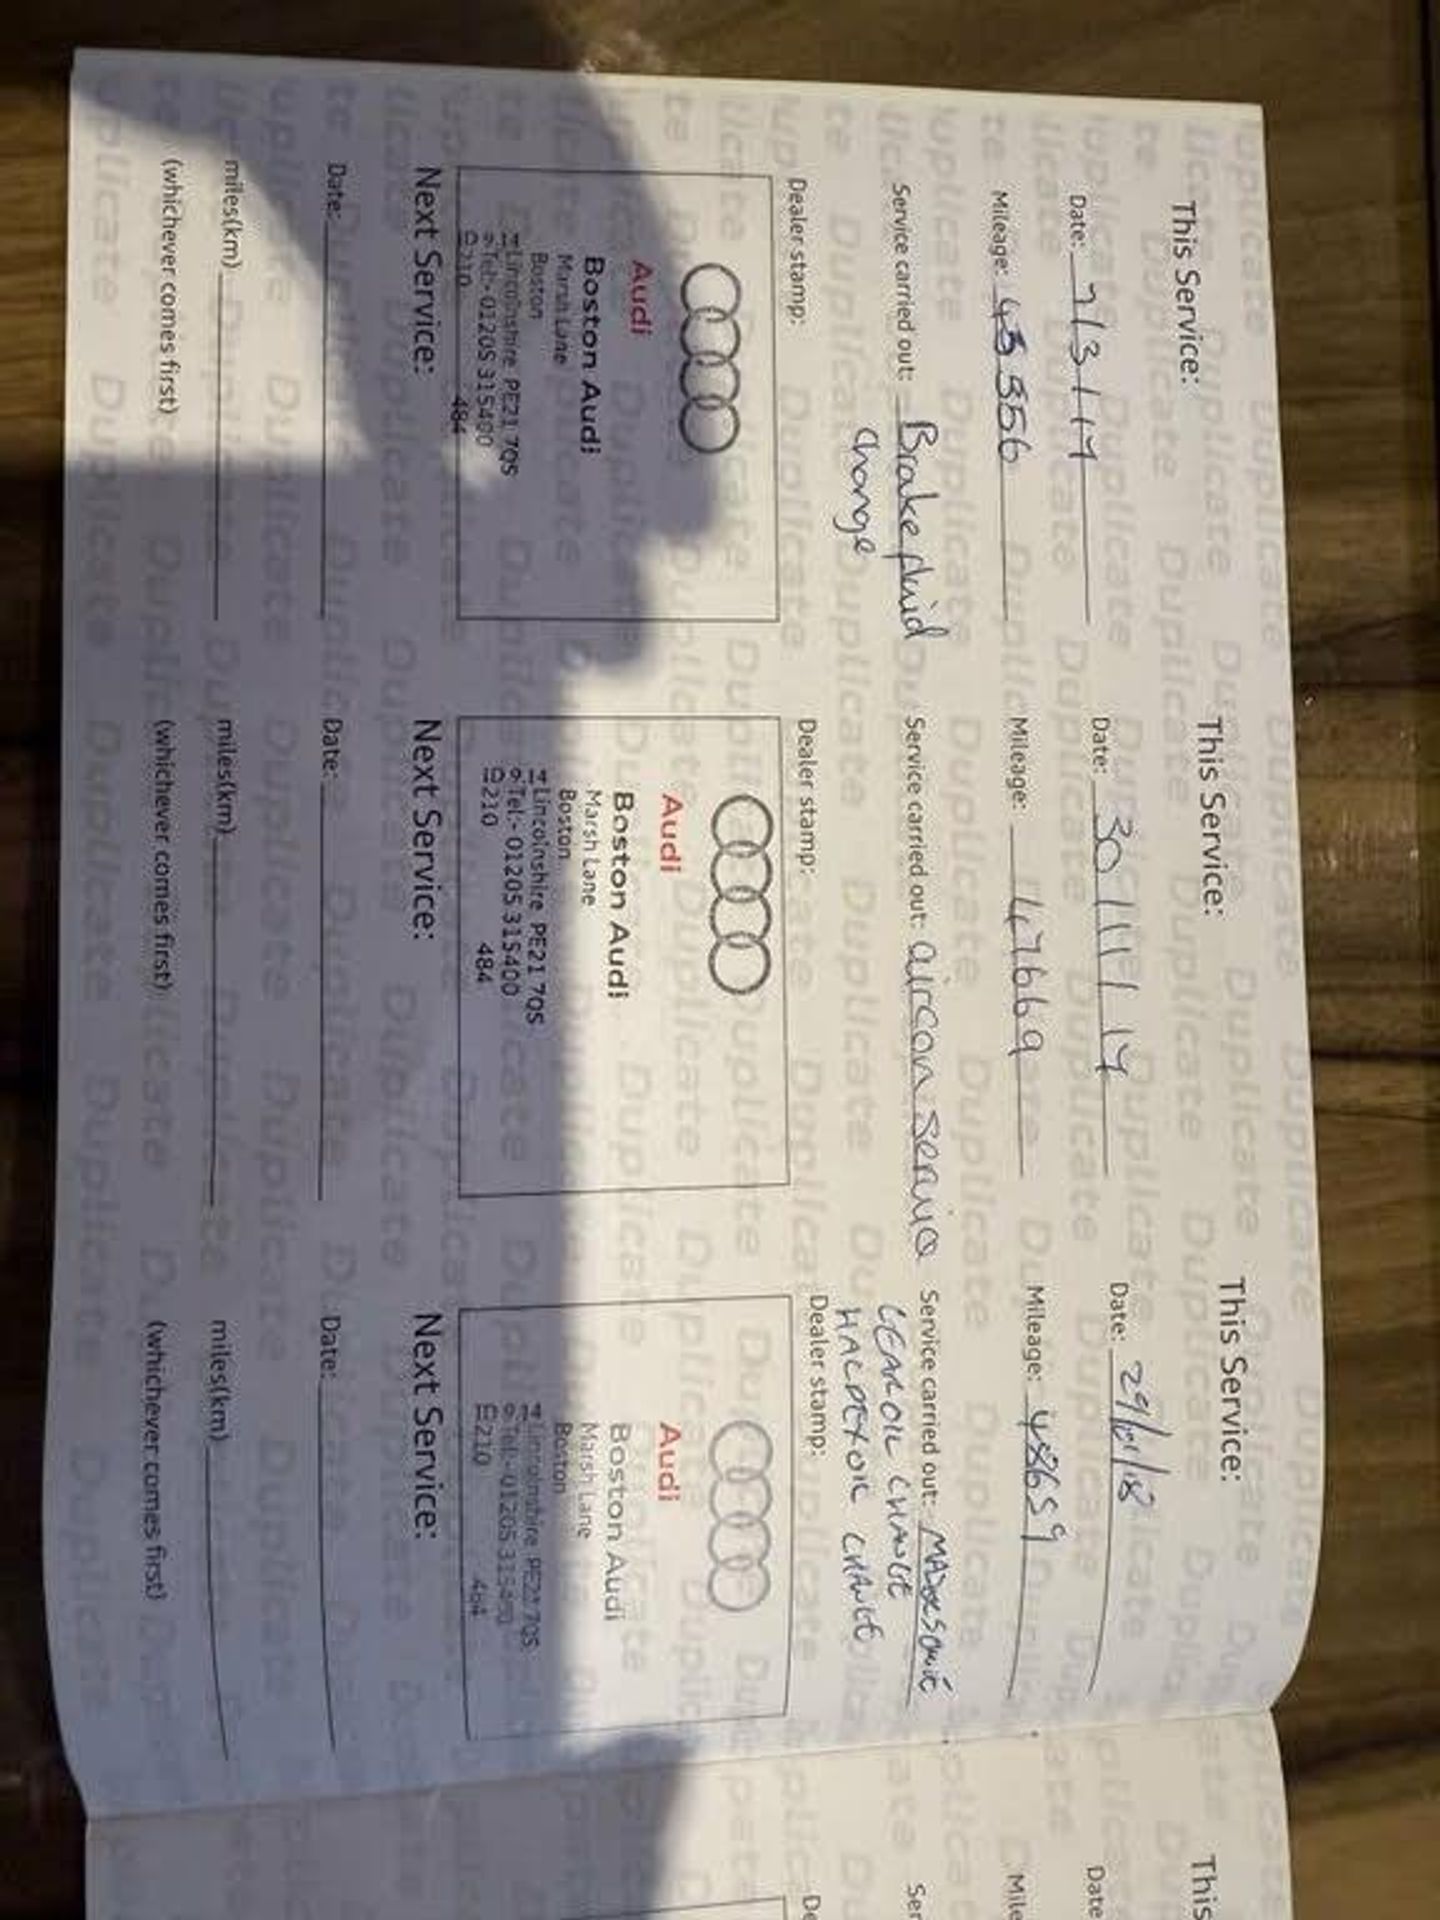 This Service:
Date: 7/3/17
Mileage: 45556
Service carried out: Brake fluid
change
Dealer stamp:
Audi
Boston Audi
Marsh Lane
Boston
Lincolnshire PE21 7QS
Tel:- 01205 315400
ID210 484
Next Service:
Date:
miles(km)
(whichever comes first)
This Service:
Date: 30/11/17
Mileage: 47669
Service carried out: aircon service
Dealer stamp:
Audi
Boston Audi
Marsh Lane
Boston
14 Lincolnshire PE21 7QS
9. Tel:- 01205 315400
ID210 484
Next Service:
Date:
miles(km)
(whichever comes first)
This Service:
Date:
Mileage: 48659
Service carried out:
GEAROIL CHANGE
HALDEX OIL CHANGE
Dealer stamp:
Audi
Boston Audi
Marsh Lane
Boston
14 Lincolnshire PE21 7QS
9. Tel:- 01205 315400
ID210 484
Next Service:
Date:
miles(km)
(whichever comes first)
This
Date
Mile
Ser
De